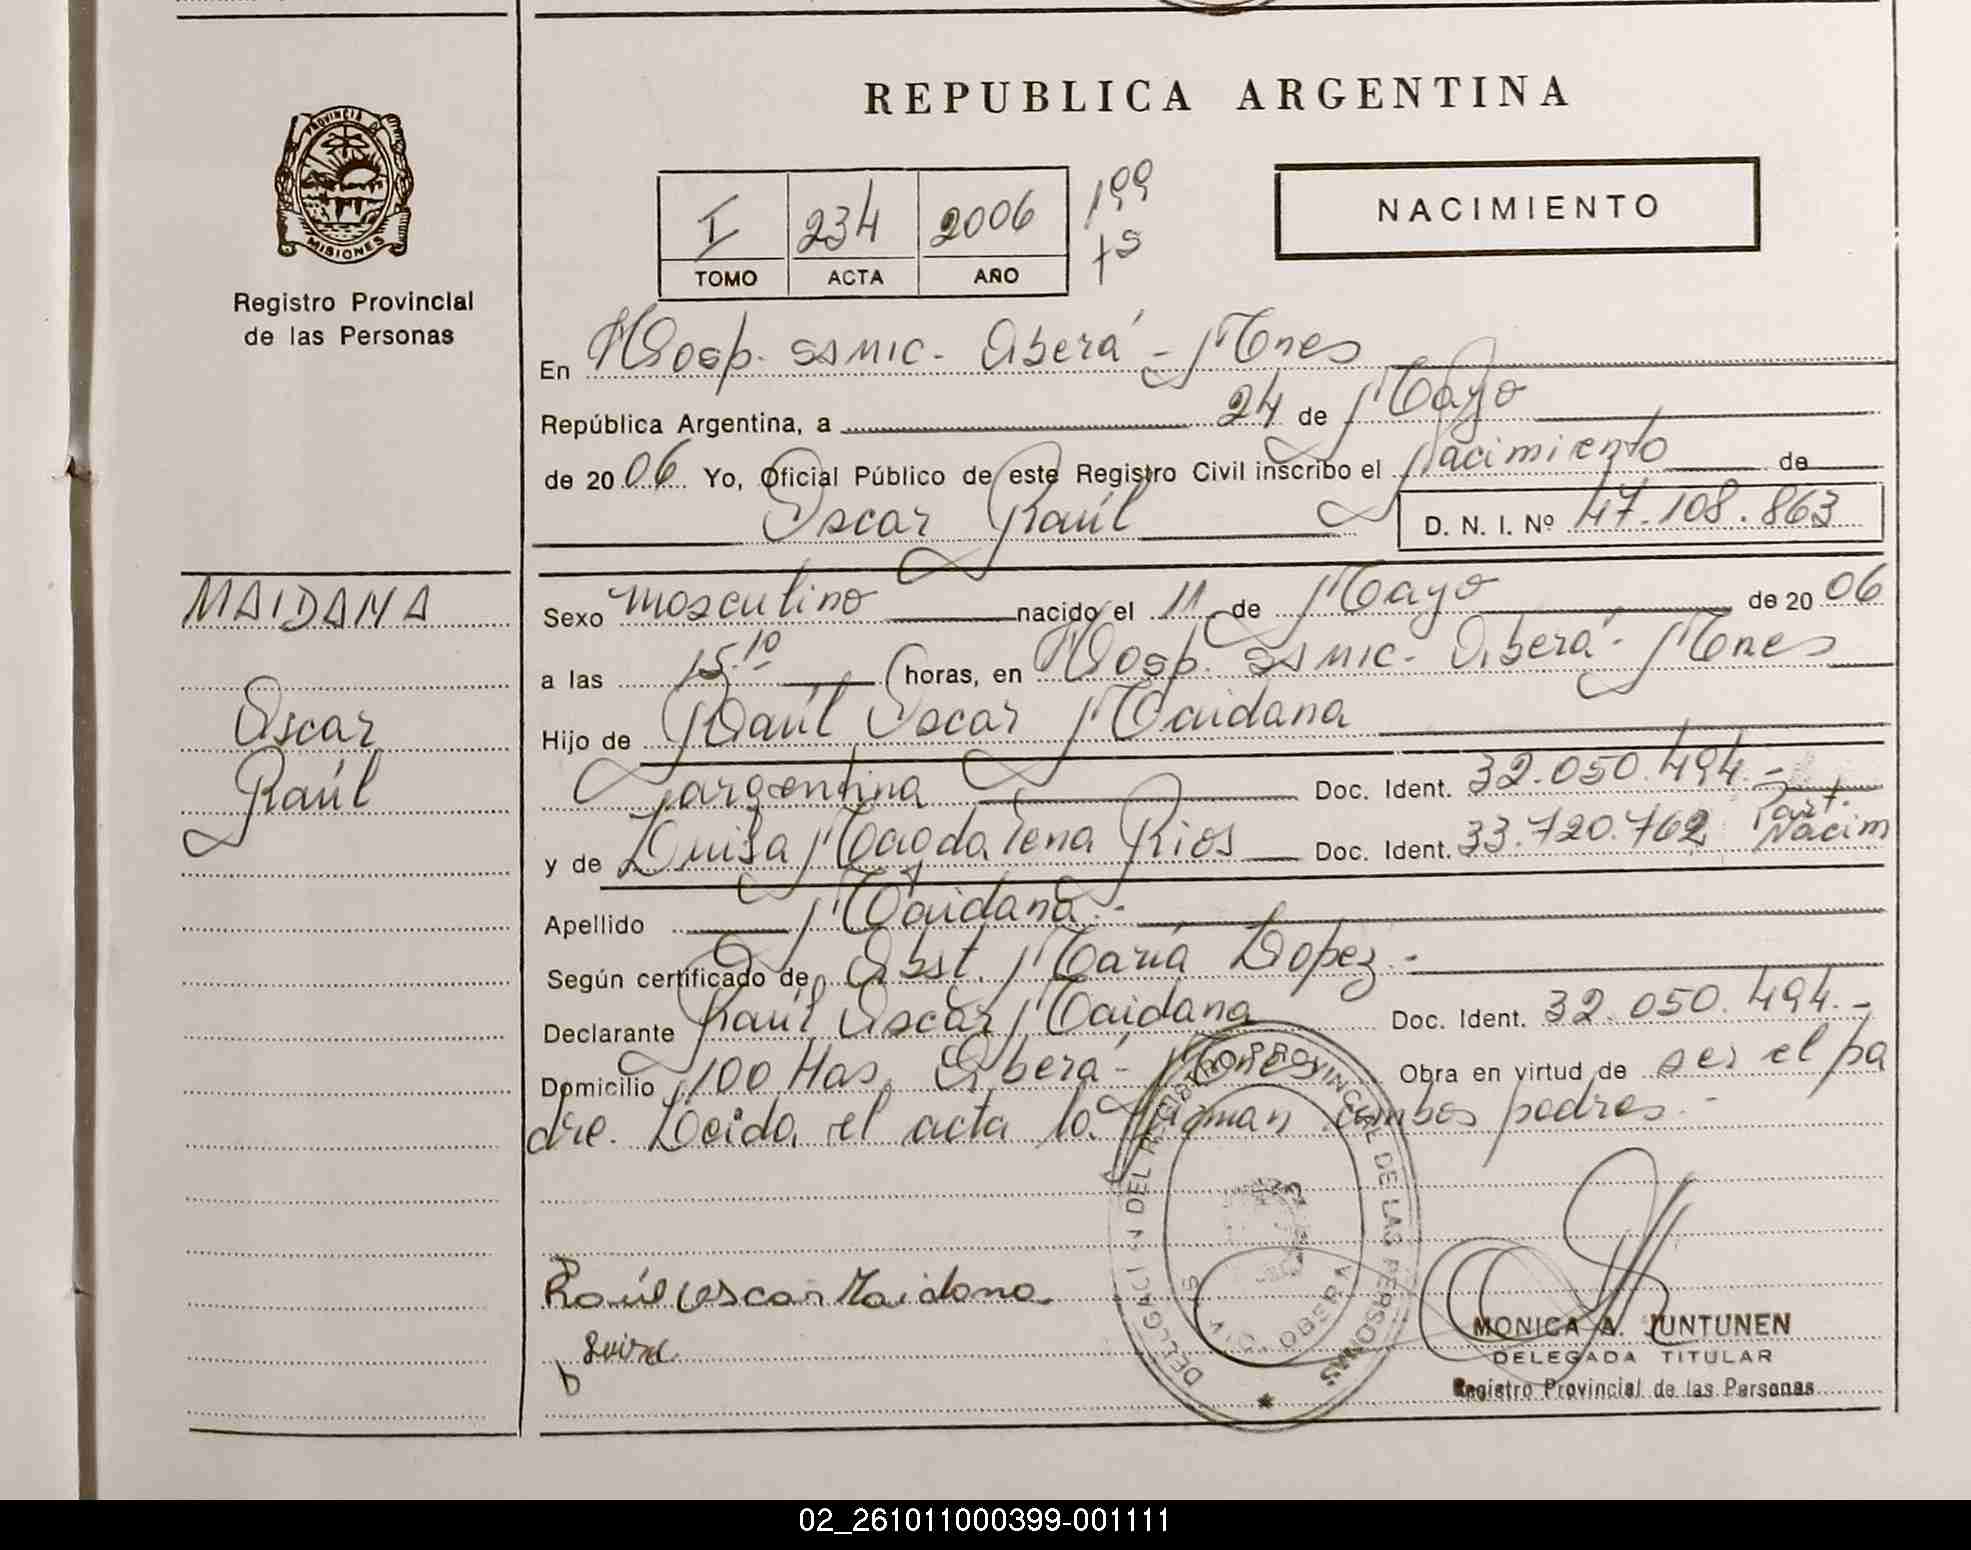 REPUBLICA ARGENTINA
PROVINCIA DE
MISIONES
Registro Provincial
de las Personas
I 234 2006 199
TOMO ACTA AÑO
NACIMIENTO
En Hosp. SSMIC. Oberá - Mnes
República Argentina, a 24 de Mayo
de 2006 Yo, Oficial Público de este Registro Civil inscribo el Nacimiento de
Oscar Raúl D. N. I. Nº 47.108.863
MAIDANA
Oscar
Raúl
Sexo masculino nacido el 11 de Mayo de 2006
a las 15.10 horas, en Hosp. SSMIC. Oberá - Mnes
Hijo de Raúl Oscar Maidana
argentina Doc. Ident. 32.050.494.-
y de Luisa Magdalena Rios Doc. Ident. 33.720.762 Part. Nacim
Apellido Maidana.-
Según certificado de Obst. María Lopez.-
Declarante Raúl Oscar Maidana Doc. Ident. 32.050.494.-
Domicilio 100 Has. Oberá - Mnes Obra en virtud de ser el pa
dre. Leida el acta la firman ambos padres.-
Raúl Oscar Maidana
DEL REGISTRO PROVINCIAL DE LAS PERSONAS
OBERA
MONICA A. JUNTUNEN
DELEGADA TITULAR
Registro Provincial de las Personas
02_261011000399-001111